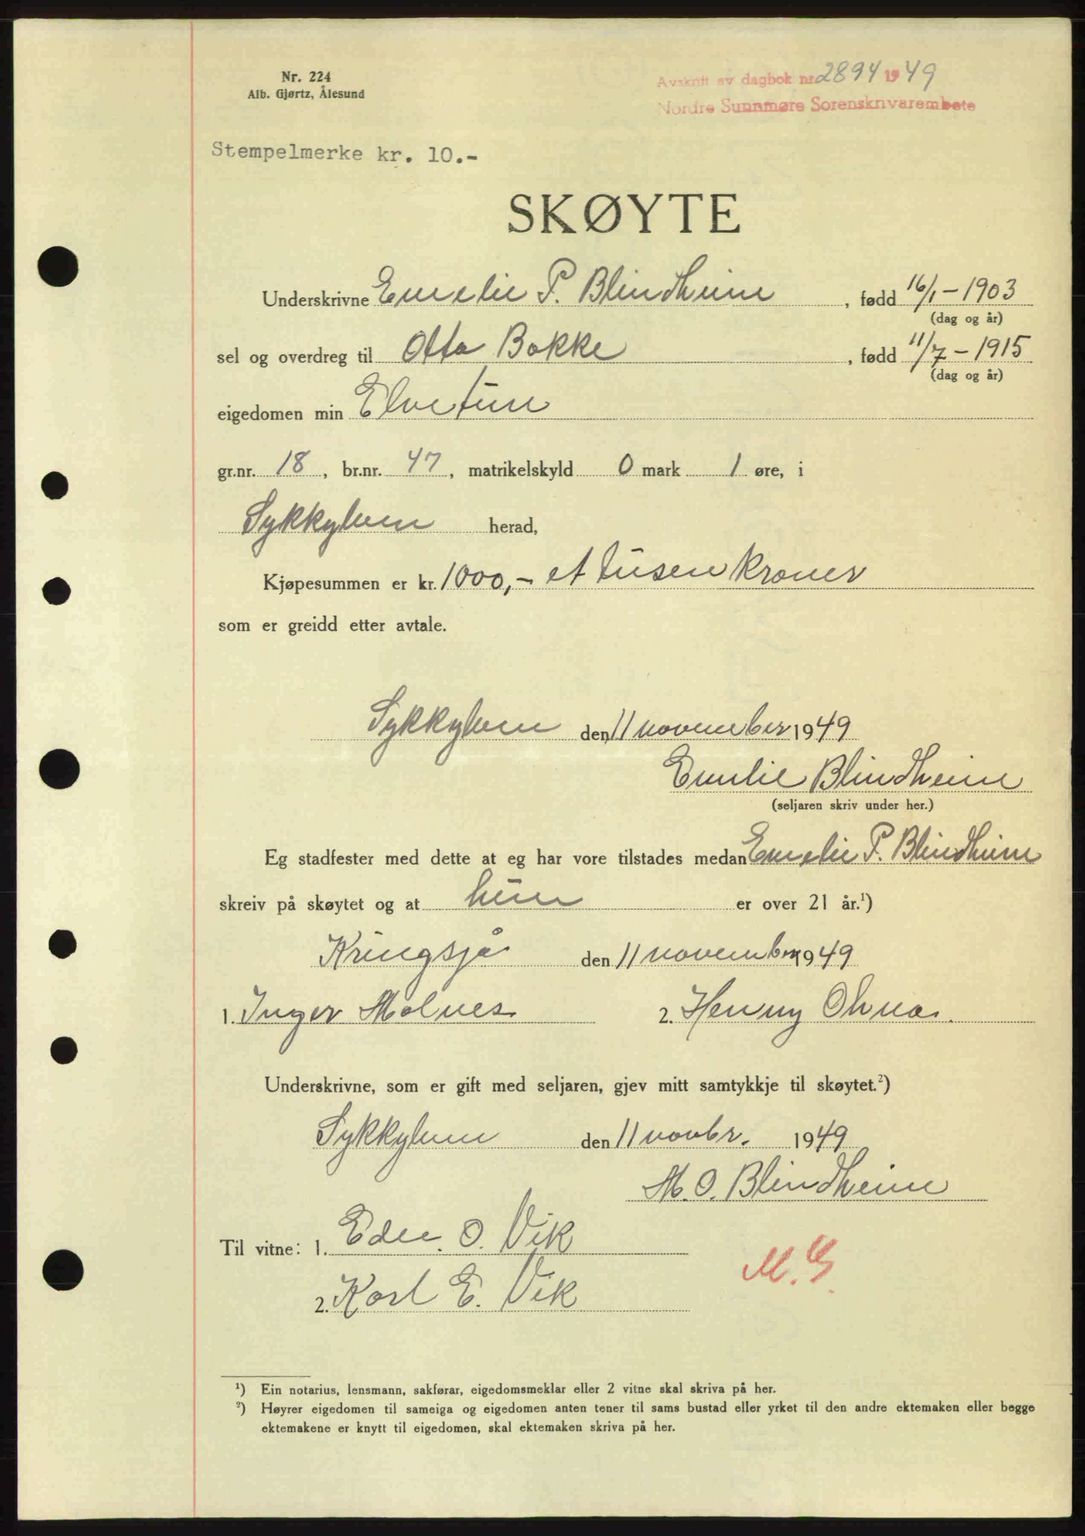 Nr. 224
Alb. Gjørtz, Ålesund
Avskrift av dagbok nr. 2894 1949
Nordre Sunnmøre Sorenskrivarembete
Stempelmerke kr. 10.-
SKØYTE
Underskrivne Emelie P. Blindheim, fødd 16/1-1903
(dag og år)
sel og overdreg til Otto Bakke, fødd 11/7-1915
(dag og år)
eigedomen min Elvetun
gr.nr. 18, br.nr. 47, matrikelskyld 0 mark 1 øre, i
Sykkylven herad,
Kjøpesummen er kr. 1000,- et tusen kroner
som er greidd etter avtale.
Sykkylven den 11 november 1949
Emelie Blindheim
(seljaren skriv under her.)
Eg stadfester med dette at eg har vore tilstades medan Emelie P. Blindheim
skreiv på skøytet og at hun er over 21 år.¹)
Kringsjå den 11 november 1949
1. Inger Molnes 2. Henny
Underskrivne, som er gift med seljaren, gjev mitt samtykkje til skøytet.²)
Sykkylven den 11 novbr. 1949
M. O. Blindheim
Til vitne: 1. O. Vik
2. Karl E. Vik
M. G.
¹) Ein notarius, lensmann, sakførar, eigedomsmeklar eller 2 vitne skal skriva på her.
²) Høyrer eigedomen til sameiga og eigedomen anten tener til sams bustad eller yrket til den andre ektemaken eller begge
ektemakene er knytt til eigedomen, skal ektemaken skriva på her.